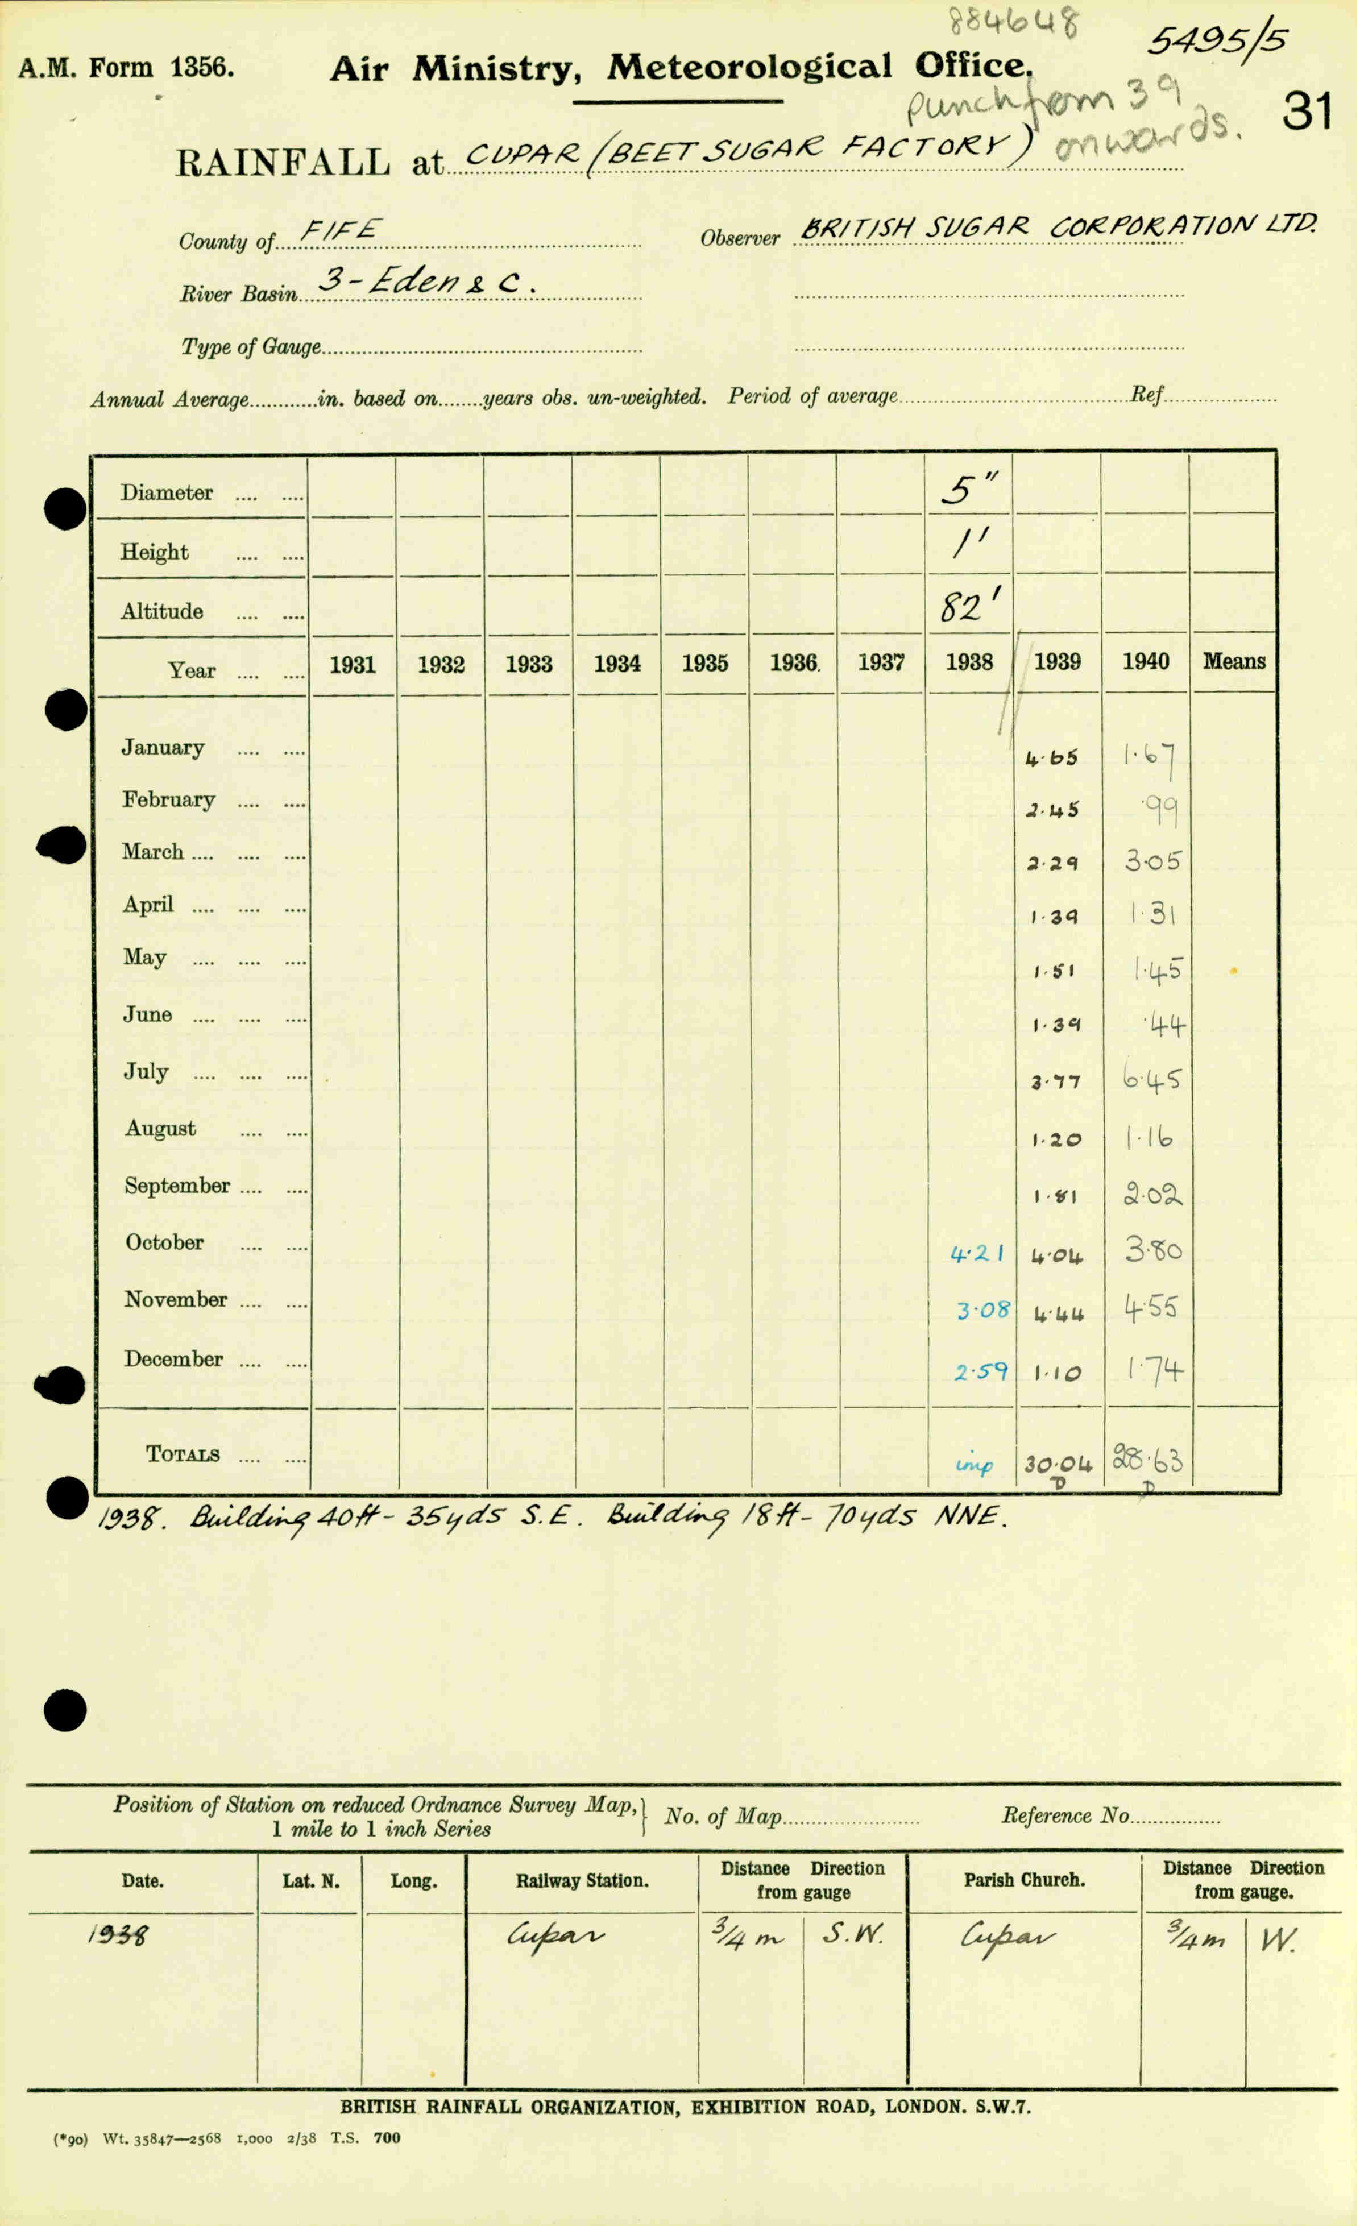 884648
5495/5
A.M. Form 1356. Air Ministry, Meteorological Office.
punch from 39 onwards.
31
RAINFALL at CUPAR (BEET SUGAR FACTORY)
County of FIFE Observer BRITISH SUGAR CORPORATION LTD.
River Basin 3 - Eden & C.
Type of Gauge
Annual Average in. based on years obs. un-weighted. Period of average Ref.
Diameter .... .... 5"
Height .... .... 1'
Altitude .... .... 82'
Year .... .... 1931 1932 1933 1934 1935 1936. 1937 1938 1939 1940 Means
January .... .... 4.65 1.67
February .... .... 2.45 .99
March .... .... .... 2.29 3.05
April .... .... .... 1.39 1.31
May .... .... .... 1.51 1.45
June .... .... .... 1.39 .44
July .... .... .... 3.77 6.45
August .... .... 1.20 1.16
September .... .... 1.81 2.02
October .... .... 4.21 4.04 3.80
November .... .... 3.08 4.44 4.55
December .... .... 2.59 1.10 1.74
TOTALS .... .... imp 30.04 28.63
D D
1938. Building 40ft - 35yds S.E. Building 18ft - 70yds NNE.
Position of Station on reduced Ordnance Survey Map, } No. of Map Reference No.
1 mile to 1 inch Series
Date. Lat. N. Long. Railway Station. Distance Direction from gauge Parish Church. Distance Direction from gauge.
1938 Cupar 3/4 m S.W. Cupar 3/4 m W.
BRITISH RAINFALL ORGANIZATION, EXHIBITION ROAD, LONDON. S.W.7.
(*90) Wt. 35847—2568 1,000 2/38 T.S. 700